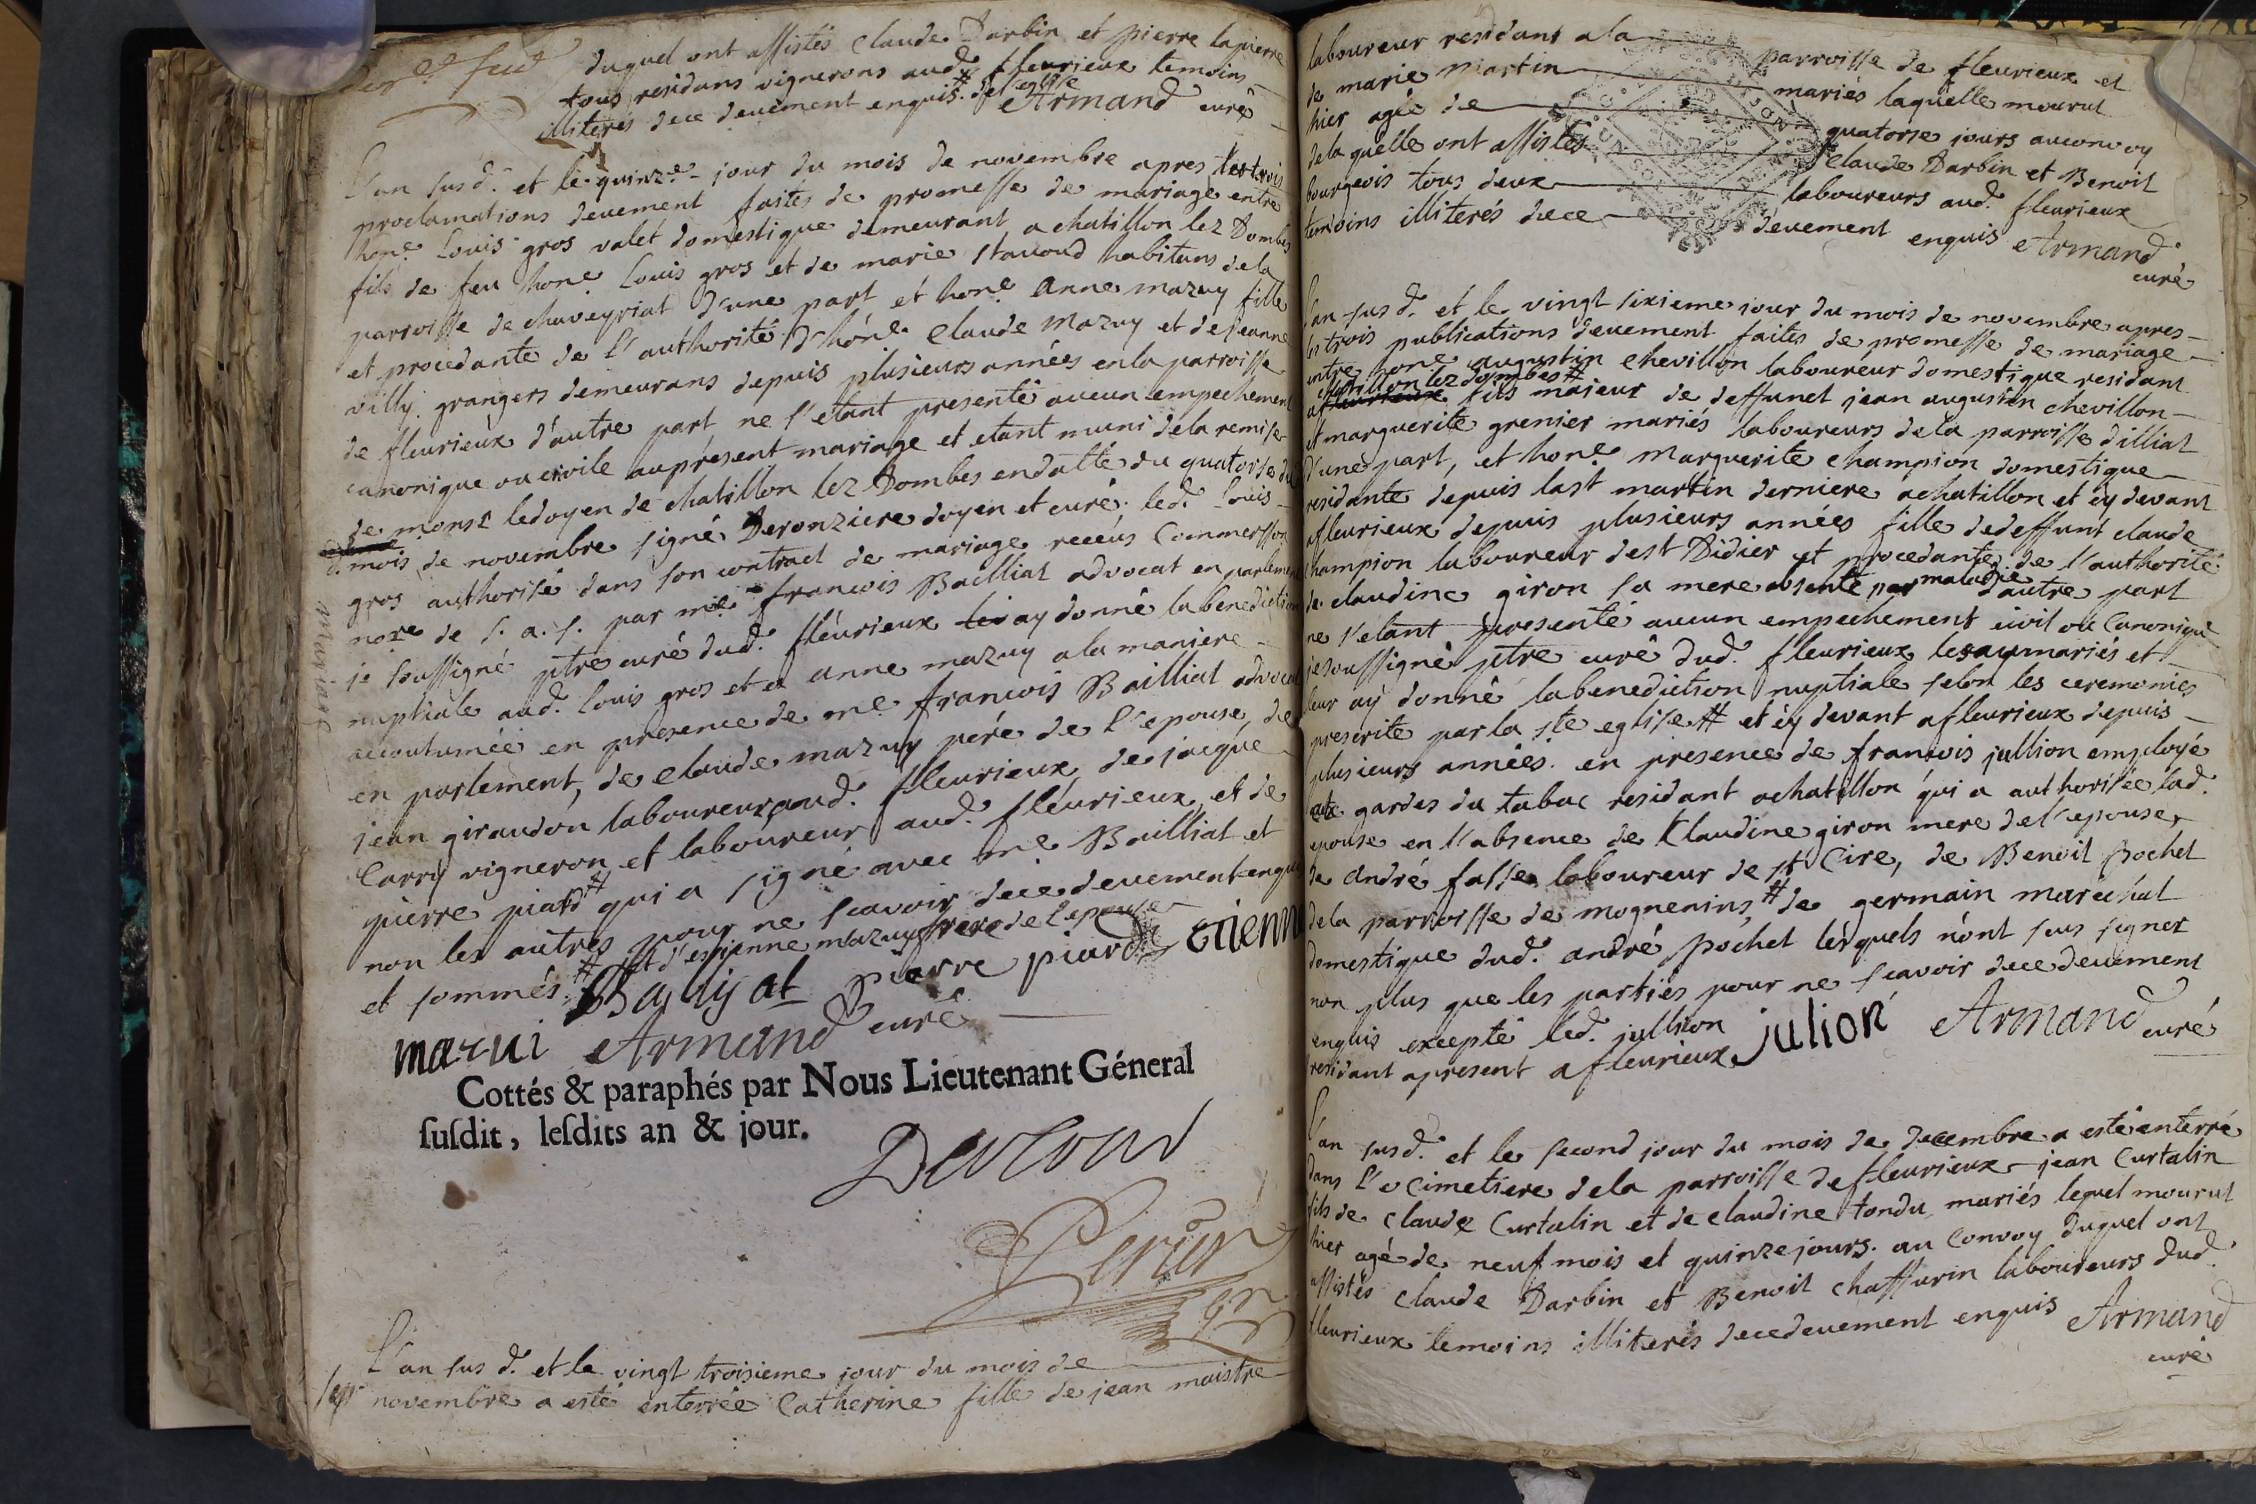 duquel ont assistés Claude Darbin et pierre lapierre
tous residans vignerons aud. fleurieux temoins
illiterés de ce devement enquis. # de l'eglise Armand curé
L'an susd. et le quinze jour du mois de novembre apres les trois
proclamations deuement faites de promesse de mariage entre
hone. Louis gros valet domestique demeurant a chatillon lez Dombes
fils de feu hone. Louis gros et de marie stavoud habitans de la
parroisse de chaveyriat d'une part et hone. Anne mazuy fille
et procedante de l'authorité d'hone. Claude Mazuy et de jeanne
willy. grangers demeurans depuis plusieurs années en la parroisse
de fleurieux d'autre part ne s'etant presenté aucun empechement
canonique ou civile au present mariage et etant muni de la remise
de monsr. le doyen de chatillon lez Dombes en datte du quatorse du
d. mois de novembre signé Deronziere doyen et curé. led. Louis
gros authorisé dans son contract de mariage receus Commersson
nore de S. a. S. par me. francois Bailliat advocat en parlement
je soussigné ptre curé dud. fleurieux ay donné la benediction
nuptiale aud. Louis gros et a anne mazuy a la maniere
accoutumée en presence de me. francois Bailliat advocat
en parlement, de Claude mazuy pere de l'epouse, de
jean giraudon laboureur aud. fleurieux, de jacque
Carry vigneron et laboureur aud. fleurieux et de
pierre piard # qui a signé avec me. Bailliat et
non les autres pour ne scavoir de ce devement enquis
et sommés. # et d'estienne mazuy frere de l'epouse
Bailliat pierre piard Etienne
mazui Armand curé
Mariage
Cottés & paraphés par Nous Lieutenant Géneral
susdit, lesdits an & jour.
L'an susd. et le vingt troisieme jour du mois de
novembre a esté enterrée Catherine fille de jean maistre
laboureur residant a la parroisse de fleurieux et
de marie Martin mariés laquelle mourut
hier agée de quatorse jours au convoy
de la quelle ont assistés Claude Darbin et Benoit
bourgeois tous deux laboureurs aud. fleurieux
temoins illiterés de ce devement enquis Armand
curé
L'an susd. et le vingt sixieme jour du mois de novembre apres
les trois publications deuement faites de promesse de mariage
entre hone augustin chevillon laboureur domestique residant
a chatillon lez dombes # fils majeur de deffunct jean augustin chevillon
et marguerite grenier mariés laboureurs de la parroisse d'illiat
d'une part, et hone. Marguerite Champion domestique
residante depuis la st martin derniere a chatillon et cy devant
a fleurieux depuis plusieurs années fille de deffunt claude
Champion laboureur de st Didier et procedante de l'authorité
de claudine giron sa mere absente par maladie d'autre part
ne s'etant presenté aucun empechement civil ou Canonique
je soussigné ptre curé dud. fleurieux les ay mariés et
leur ay donné la benediction nuptiale selon les ceremonies
prescrite par la ste eglise # et cy devant a fleurieux depuis
plusieurs années. en presence de francois jullion employé
aux gardes du tabac residant a chatillon qui a authorisée lad.
epouse en l'absence de Claudine giron mere de l'epouse
de André fasse laboureur de st Cire, de Benoit Pochet
de la parroisse de mognenins, # de germain marechal
domestique dud. andré pochet lesquels n'ont sus signer
non plus que les parties pour ne scavoir de ce devement
enquis excepté led. jullion julion Armand curé
residant apresent a fleurieux
L'an susd. et le second jour du mois de decembre a esté enterré
dans le Cimetiere de la parroisse de fleurieux jean Curtalin
fils de claude Curtalin et de claudine tondu mariés lequel mourut
hier agé de neuf mois et quinze jours. au Convoy duquel ont
assistés Claude Darbin et Benoit chaffurin laboureurs dud.
fleurieux temoins illiterés de ce devement enquis Armand
curé